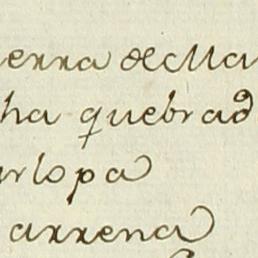 erra de Ma
ha quebrad
rlopa
arrena